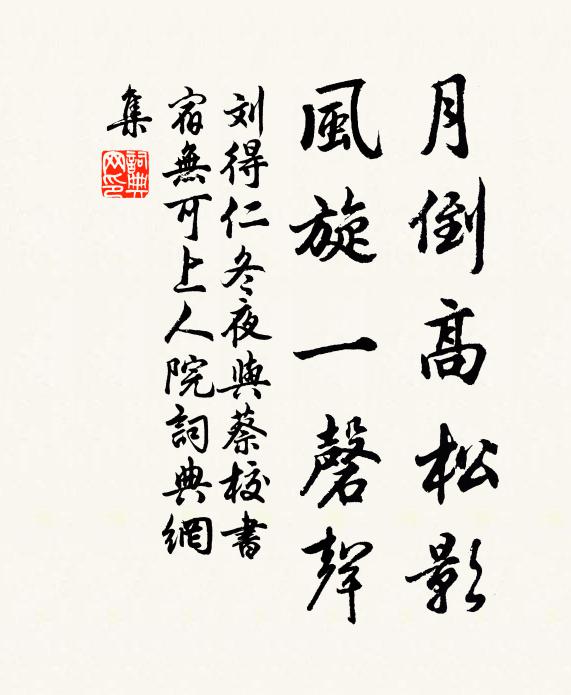 月倒高松影
風旋一磬聲
刘得仁冬夜與蔡校書
宿無可上人院詞典網
集
詞典
网印